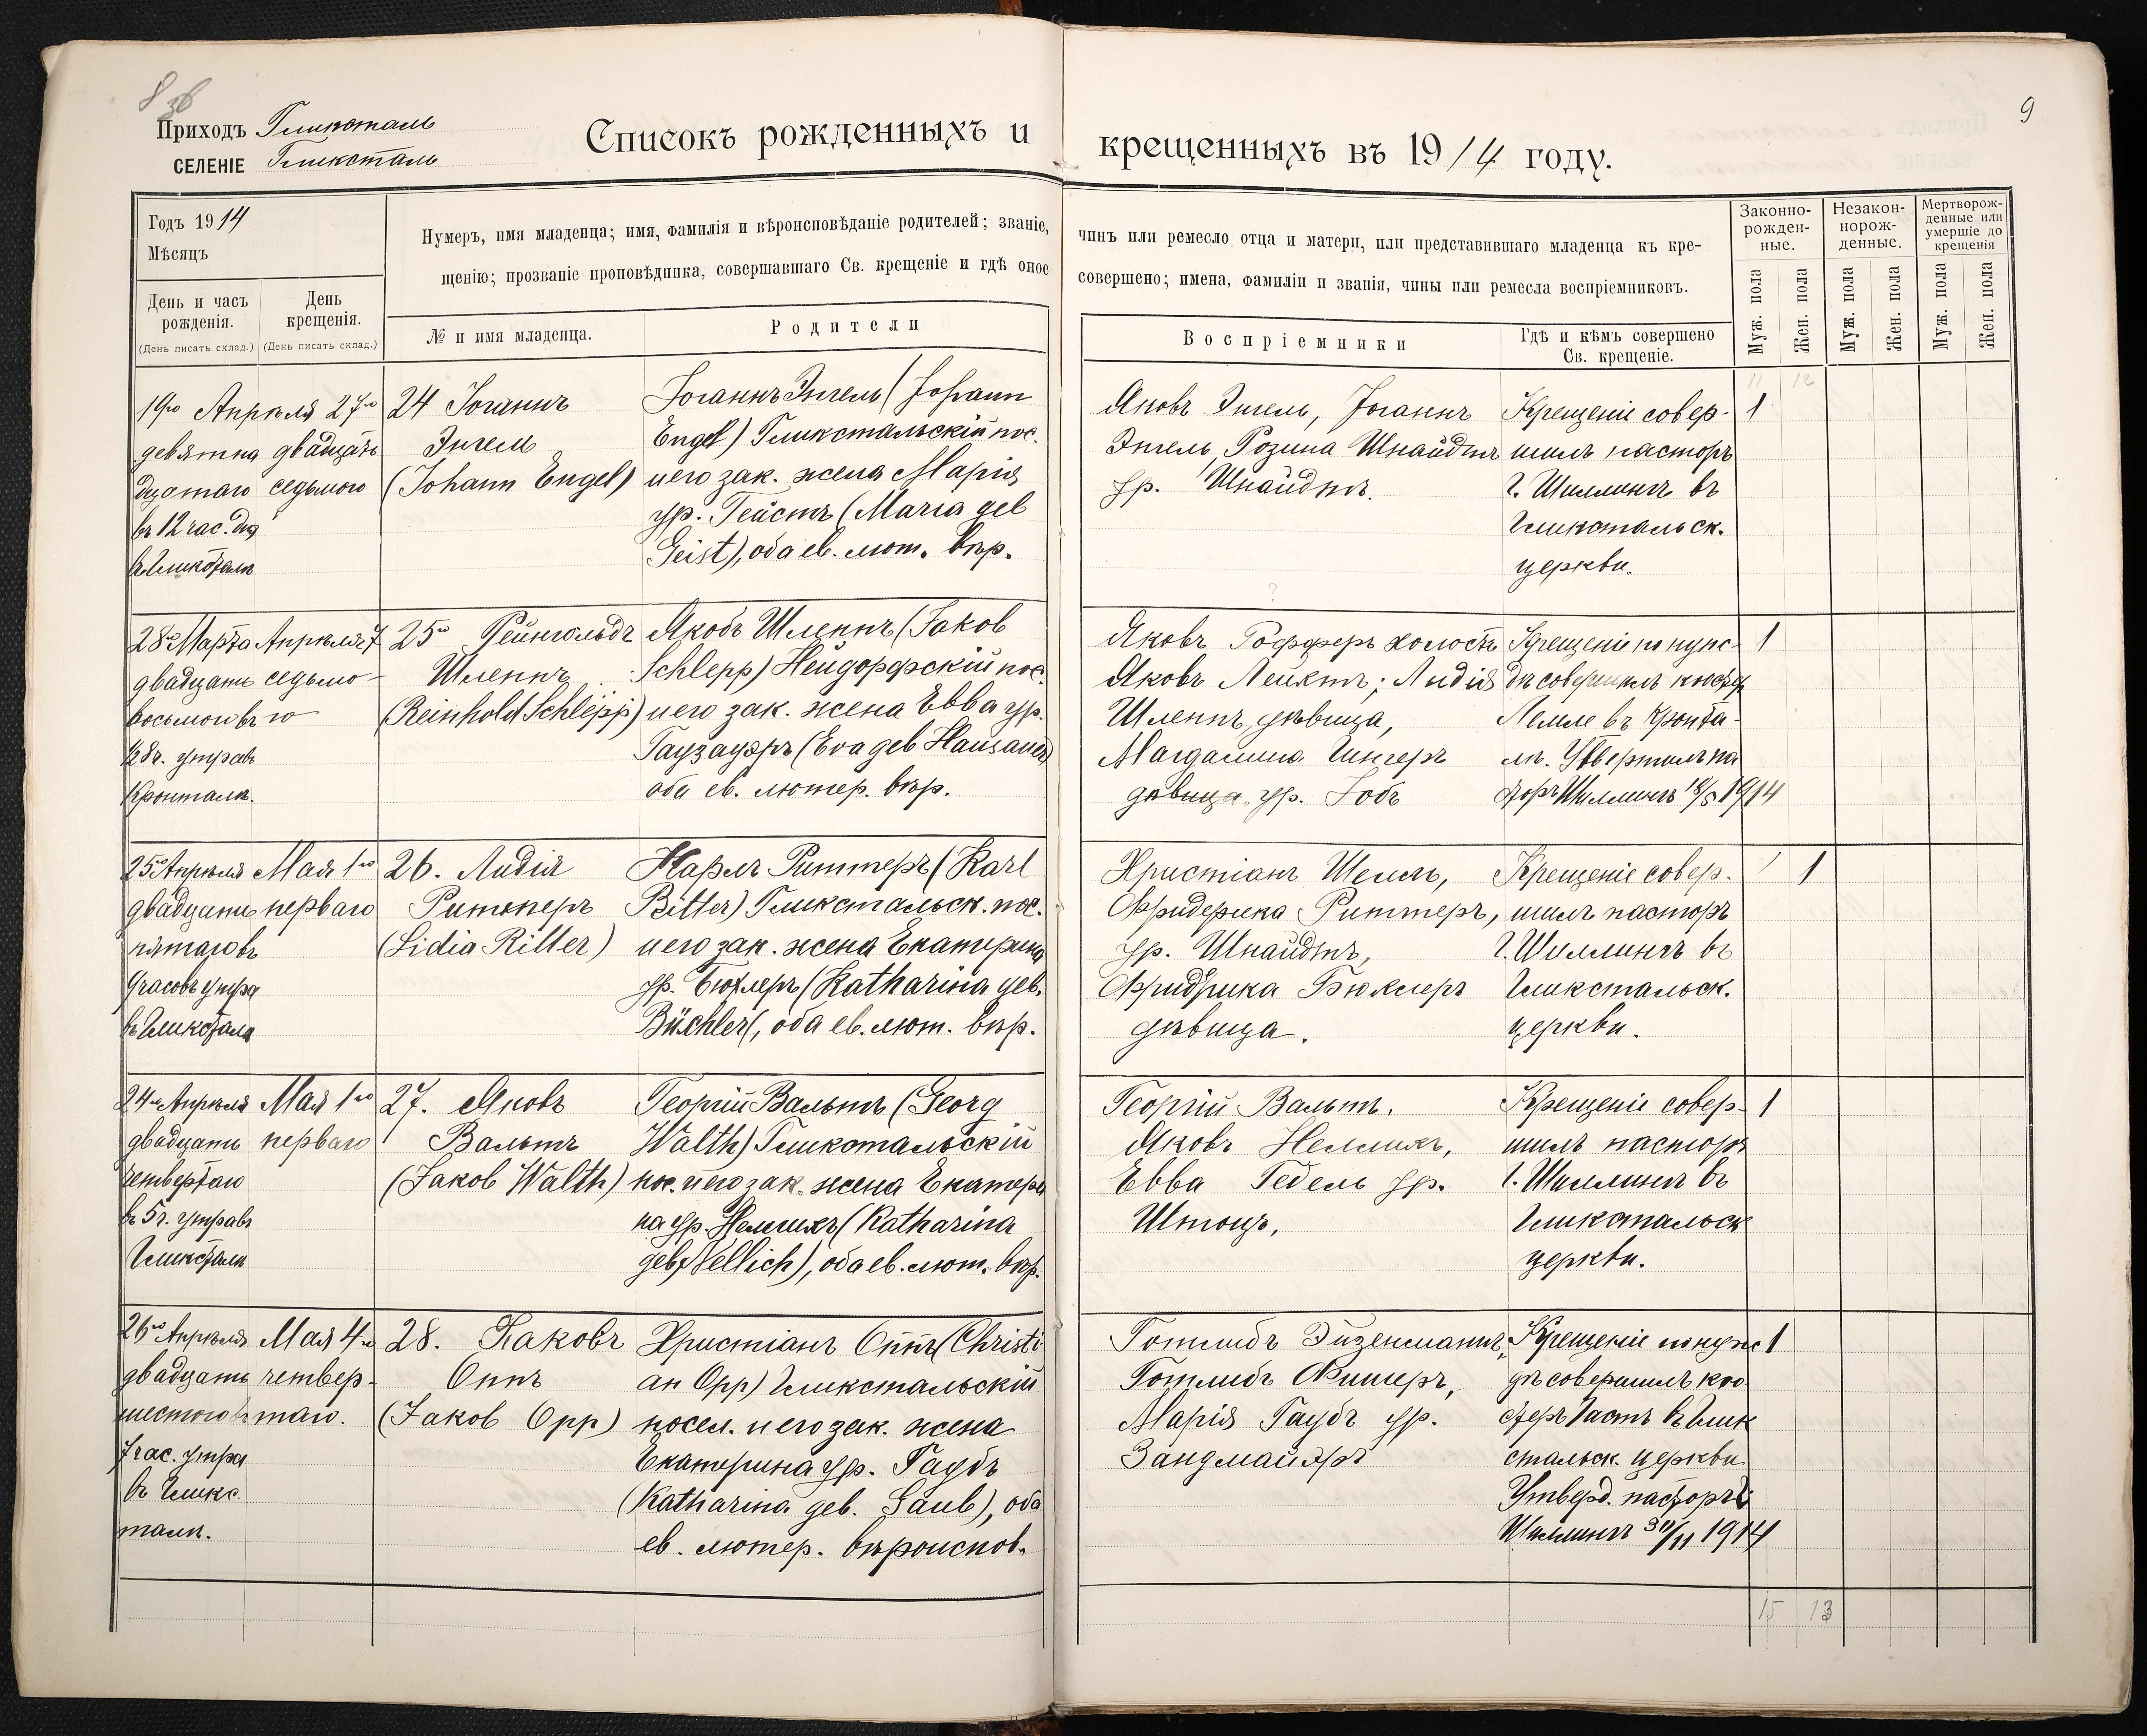 8 зв
Приходъ Гликсталь
СЕЛЕНІЕ Гликсталь
Списокъ рожденныхъ и
Годъ 1914
Мѣсяцъ
День и часъ рожденія.
(День писать склад.)
День крещенія.
(День писать склад.)
Нумеръ, имя младенца; имя, фамилія и вѣроисповѣданіе родителей; званіе,
щенію; прозваніе проповѣдника, совершавшаго Св. крещеніе и гдѣ оное
№ и имя младенца.
Родители
19го Апрѣля
девятна
дцатаго
въ 12 час. дня
в Гликсталѣ
27го
двадцать
седьмого
24 Іоганнъ
Энгель
(Johann Engel)
Іоганнъ Энгель (Johann
Engel) Гликстальскій пос.
и его зак. жена Марія
ур. Гейстъ (Maria geb
Geist), оба ев. лют. вѣр.
28го Марта
двадцать
восьмого въ
½ 8 ч. утра въ
Кронталѣ.
Апрѣля 7
седьмо-
го
25го Рейнгольдъ
Шлеппъ
(Reinhold Schlepp)
Якобъ Шлеппъ (Jakob
Schlepp) Нейдорфскій пос.
и его зак. жена Евва ур.
Гаузауэръ (Eva geb Hausauer)
оба ев. лютер. вѣр.
25го Апрѣля
двадцать
пятаго въ
9 часовъ утра
въ Гликсталѣ
Мая 1го
перваго
26. Лидія
Риттеръ
(Lidia Ritter)
Карлъ Риттеръ (Karl
Ritter) Гликстальск. пос.
и его зак. жена Екатерина
ур. Бюхлеръ (Katharina geb.
Büchler), оба ев. лют. вѣр.
24го Апрѣля
двадцать
четвертаго
въ 5 ч. утра въ
Гликсталѣ
Мая 1го
перваго
27. Яковъ
Вальтъ
(Jakob Walth)
Георгій Вальтъ (Georg
Walth) Гликстальскій
пос. и его зак. жена Екатери
на ур. Неллихъ (Katharina
geb. Nellich), оба ев. лют. вѣр.
26го Апрѣля
двадцать
шестого въ
7 час. утра
въ Гликс
талѣ.
Мая 4го
четвер-
таго.
28. Яаковъ
Оппъ
(Jakob Opp)
Христіанъ Оппъ (Christi
an Opp) Гликстальскій
посел. и его зак. жена
Екатерина ур. Гаубъ
(Katharina geb. Gaub), оба
ев. лютер. вѣроиспов.
9
крещенныхъ въ 1914 году.
чинъ или ремесло отца и матери, или представившаго младенца къ кре-
совершено; имена, фамиліи и званія, чины или ремесла воспріемниковъ.
Воспріемники
Гдѣ и кѣмъ совершено
Св. крещеніе.
Законно-
рожден-
ные.
Незакон-
норож-
денные.
Мертворож-
денные или
умершіе до
крещенія
Муж. пола
Жен. пола
Муж. пола
Жен. пола
Муж. пола
Жен. пола
11 12
Яковъ Энгель, Іоганнъ
Энгель, Розина Шнайдтъ
ур. Шнайдтъ.
Крещеніе совер-
шилъ пасторъ
Г. Шиллингъ въ
Гликстальск.
церкви.
1
?
Яковъ Гофферъ холостъ
Яковъ Лейхтъ; Лидія
Шлеппъ дѣвица,
Магдалина Гингеръ
дѣвица ур. Іобъ
Крещеніе по нуж-
дѣ совершилъ кюстер
Лемле въ Кронта-
лѣ. Утвердилъ па
сторъ Шиллингъ 18/5 1914
1
Христіанъ Шелль,
Фридерика Риттеръ,
ур. Шнайдтъ,
Фридрика Бюхлеръ
дѣвица.
Крещеніе совер-
шилъ пасторъ
Г. Шиллингъ въ
Гликстальск.
церкви.
1
Георгій Вальтъ.
Яковъ Неллихъ,
Евва Гебель ур.
Штоцъ,
Крещеніе совер-
шилъ пасторъ
Г. Шиллингъ въ
Гликстальск
церкви.
1
Готлибъ Эйзенманнъ,
Готлибъ Фишеръ,
Марія Гаубъ ур.
Зандмайэръ
Крещеніе по нуж
дѣ совершилъ кю
стеръ Гастъ въ Глик
стальск. церкви.
Утверд. пасторъ
Шиллингъ 30/11 1914
1
15 13